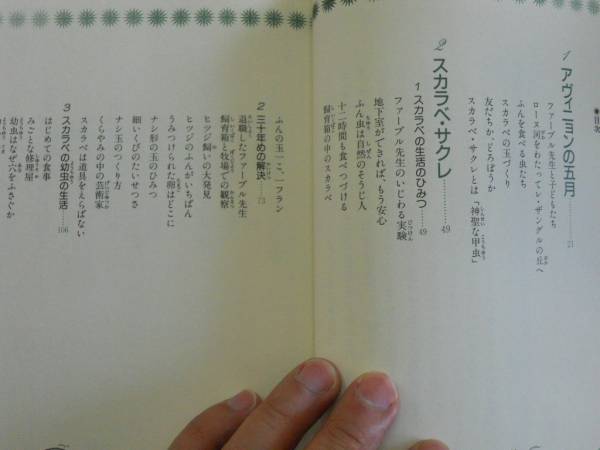 ●目次
1 アヴィニョンの五月……21
ファーブル先生と子どもたち
ローヌ河をわたってレ・ザングルの丘へ
ふんを食べる虫たち
スカラベの玉づくり
友だちか、どろぼうか
スカラベ・サクレとは「神聖な甲虫」
2 スカラベ・サクレ……49
1 スカラベの生活のひみつ……49
ファーブル先生のいじわる実験
地下室ができれば、もう安心
ふん虫は自然のそうじ人
十二時間も食べつづける
飼育箱の中のスカラベ
ふんの玉一こ、一フラン
2 三十年めの解決……73
退職したファーブル先生
飼育箱と牧場での観察
ヒツジ飼いの大発見
ヒツジのふんがいちばん
うみつけられた卵はどこに
ナシ形の玉のひみつ
細いくびのたいせつさ
ナシ玉のつくり方
くらやみの中の芸術家
スカラベは道具をえらばない
3 スカラベの幼虫の生活……106
はじめての食事
みごとな修理屋
幼虫はなぜ穴をふさぐか